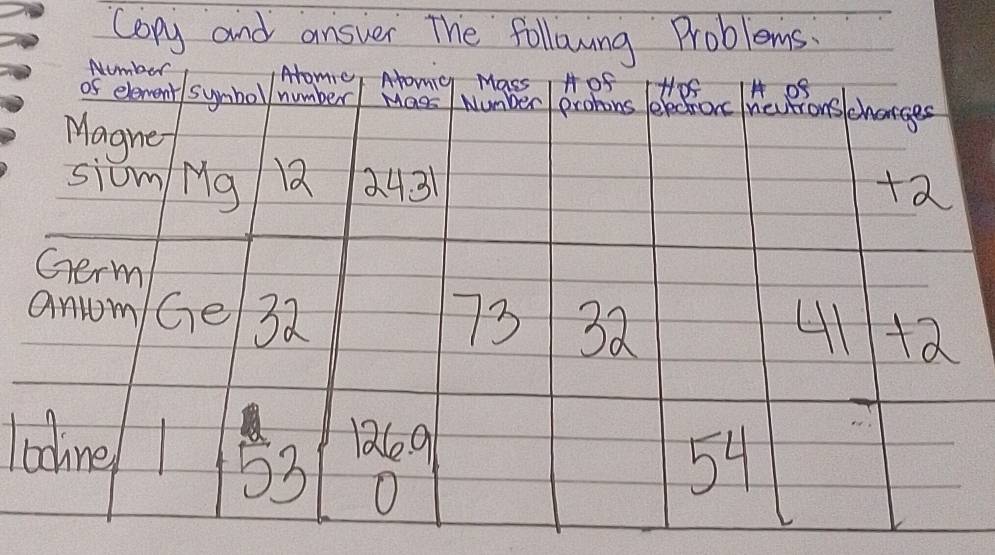 Copy and answer The follawng Problems.
Number of element symbol Atomic number Atomic Mass Mass Number # of protons # of electrons # of neutrons charges
Magne-
sium Mg 12 24.31 +2
Germ
anium Ge 32 73 32 41 +2
Iodine I 53 126.9
0 54